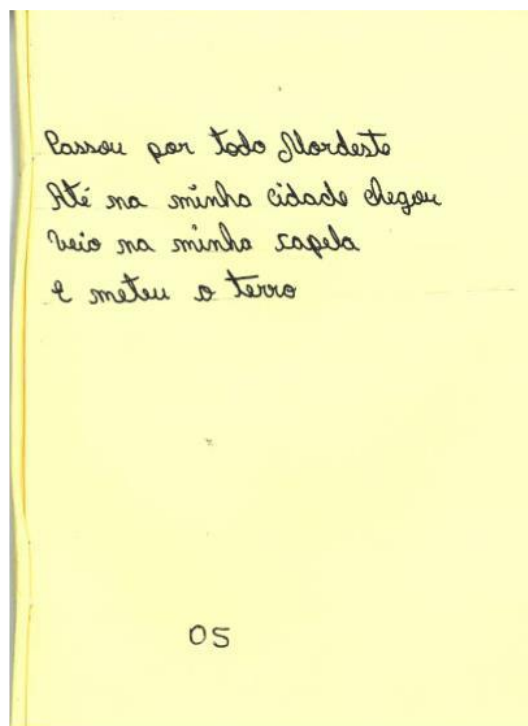 Passou por todo Nordeste
Até na minha cidade chegou
Veio na minha capela
E meteu o terro
05